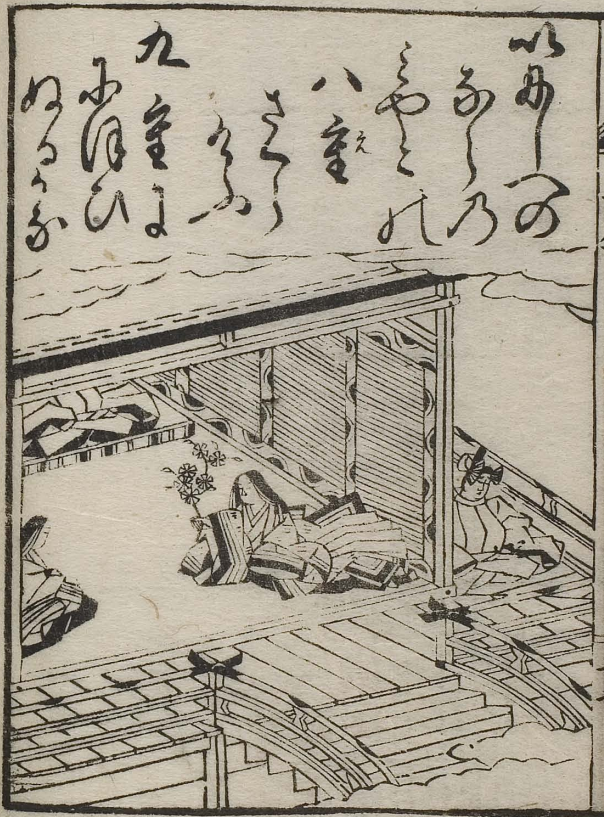 いにしへの
ならの
みやこの
八重え
さくら
けふ
九重に
にほひ
ぬるかな